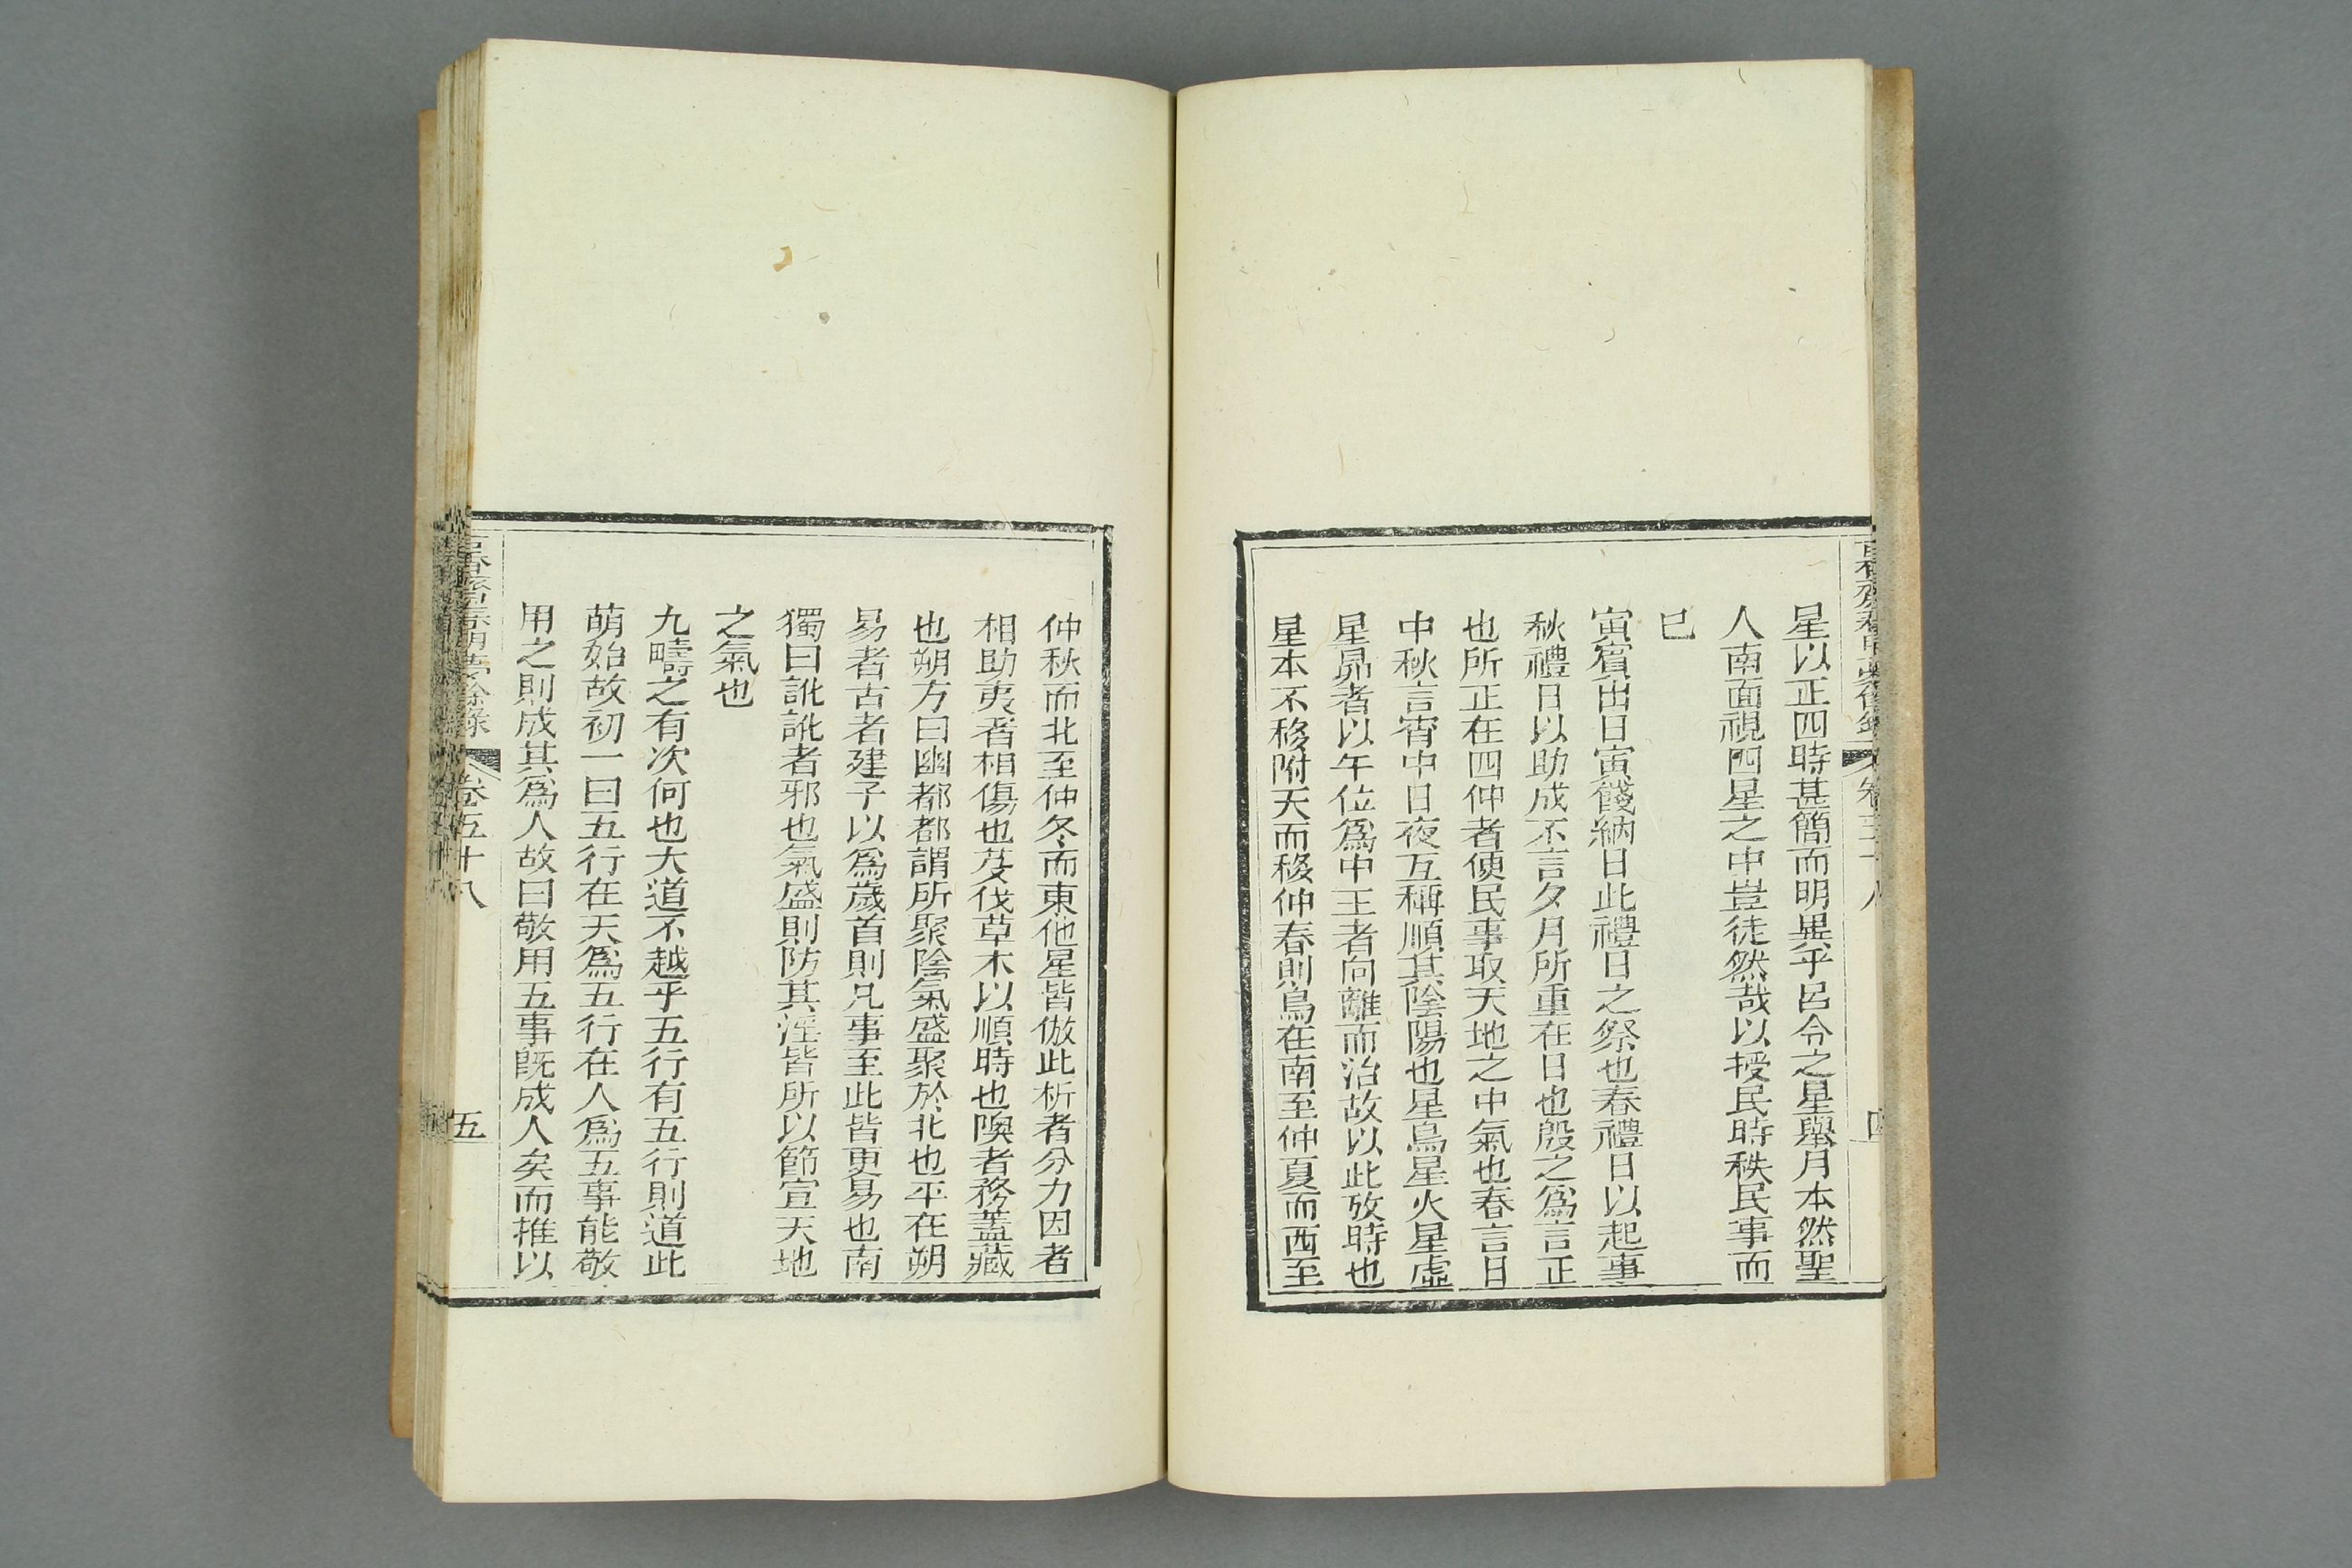 星以正四時甚簡而明異乎呂令之星舉月本然聖
人南面視四星之中豈徒然哉以授民時秩民事而
已
寅賓出日寅餞納日此禮日之祭也春禮日以起事
秋禮日以助成不言夕月所重在日也殷之為言正
也所正在四仲者使民事取天地之中氣也春言日
中秋言宵中日夜互稱順其陰陽也星鳥星火星虛
星昴者以午位為中王者向離而治故以此攷時也
星本不移附天而移仲春則鳥在南至仲夏而西至
仲秋而北至仲冬而東他星皆倣此析者分力因者
相助夷者相傷也芟伐草木以順時也隩者務蓋藏
也朔方曰幽都都謂所聚陰氣盛聚於北也平在朔
易者古者建子以為歲首則凡事至此皆更易也南
獨曰訛訛者邪也氣盛則防其淫皆所以節宣天地
之氣也
九疇之有次何也大道不越乎五行有五行則道此
萌始故初一曰五行在天為五行在人為五事能敬
用之則成其為人故曰敬用五事既成人矣而推以
卷五十八
五